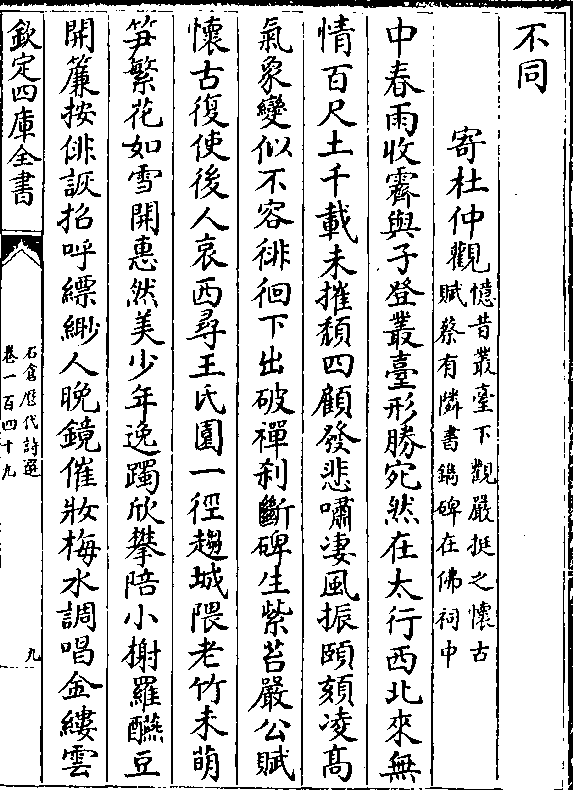 不同
寄杜仲觀憶昔叢臺下觀嚴挺之懷古
賦蔡有隣書鐫碑在佛祠中
中春雨收霽與子登叢臺形勝宛然在太行西北來無
情百尺土千載未摧頹四顧發悲嘯凄風振頤頦凌髙
氣象變似不容徘徊下出破禪刹斷碑生紫苔嚴公賦
懷古復使後人哀西尋王氏園一徑趨城隈老竹未萌
笋繁花如雪開惠然美少年逸躅欣攀陪小榭羅醼豆
開簾按俳詼招呼縹緲人晚鏡催妝梅水調唱金縷雲
欽定四庫全書
石倉歷代詩選
卷一百四十九
九